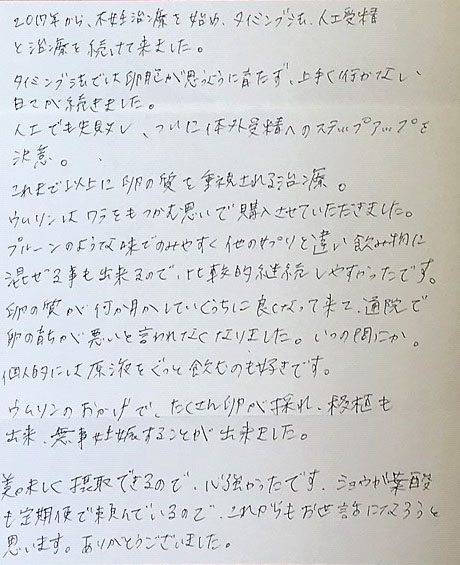 2017年から、不妊治療を始め、タイミング法、人工受精
と治療を続けて来ました。
タイミング法では卵胞が思うように育たず、上手く行かない
日々が続きました。
人工でも失敗し、ついに体外受精へのステップアップを
決意。
これまで以上に卵の質を重視される治療。
ウムリンはワラをもつかむ思いで購入させていただきました。
プルーンのような味でのみやすく他のサプリと違い飲み物に
混ぜる事も出来るので、比較的継続しやすかったです。
卵の質が何か月かしていくうちに良くなって来て、通院で
卵の育ちが悪いと言われなくなりました。いつの間にか。
個人的には原液をぐっと飲むのも好きです。
ウムリンのおかげで、たくさん卵が採れ、移植も
出来、無事妊娠することが出来ました。
美味しく摂取できるので、心強かったです。ショウガ葉酸
も定期便で頼んでいるので、これからもお世話になろうと
思います。ありがとうございました。